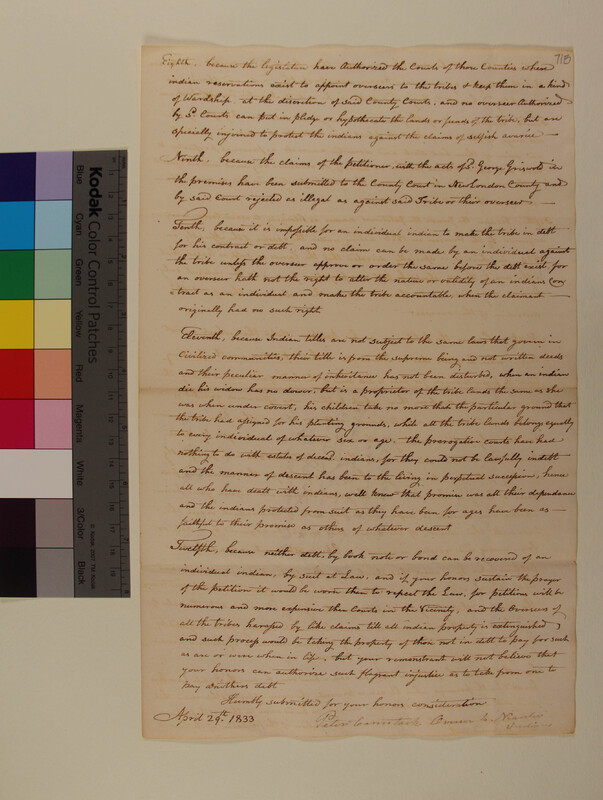 718
Eighth, because the legislature have Authorized the Courts of those Counties where
indian reservations exist to appoint overseers to the tribes & keep them in a kind
of Wardship at the discretion of said County Courts, and no overseer Authorized
by Sd Courts can put in pledge or hypothecate the lands or funds of the tribe, but are
specially injoined to protect the indians against the claims of selfish avarice
Ninth, because the claims of the Petitioner, with the acts of Sd George Griswold in
the premises have been submitted to the County Court in New London County and
by said Court rejected as illegal as against said Tribe or their overseer
Tenth, because it is impossible for an individual indian to make the tribe in debt
for his contract or debt, and no claim can be made by an individual against
the tribe unless the overseer approve or order the same before the debt exist for
an overseer hath not the right to alter the nature or validity of an indians Con
tract as an individual and make the tribe accountable when the claimant
originally had no such right
Eleventh, because Indian titles are not subject to the same laws that govern in
Civilized communities, their title is from the supreme being and not written deeds
and their peculiar manner of inheritance has not been disturbed, when an indian
die his widow has no dower, but is a proprietor of the tribe lands the same as she
was when under covert, his children take no more than the particular ground that
the tribe had assigned for his planting grounds, while all the tribe lands belongs equally
to every individual of whatever sex or age, the prerogative courts have had
nothing to do with estates of deceasd indians, for they could not be lawfully indebt
and the manner of descent has been to the living in perpetual succession, hence
all who have dealt with indians, well knew that promise was all their dependance
and the indians protected from suit as they have been for ages have been as
faithful to their promise as others of whatever descent
Twelfth, because neither debt, by book note or bond can be recovered of an
individual indian, by suit at Law, and if your honors sustain the prayer
of the petition it would be worse than to repeal the Law, for petitions will be
numerous and more expensive than Courts in the Vicinity, and the Overseers of
all the tribes harassed by like claims till all indian property is extinguished
and such process would be taking the property of those not in debt to pay for such
as are or were when in life, but your remonstrant will not believe that
your honors can authorise such flagrant injustice as to take from one to
pay anothers debt
Humbly submitted for your honors consideration
April 29th 1833
Peter Comstock Overseer to Niantic
Indians
Kodak
Color Control Patches
Blue
Cyan
Green
Yellow
Red
Magenta
White
3/Color
Black